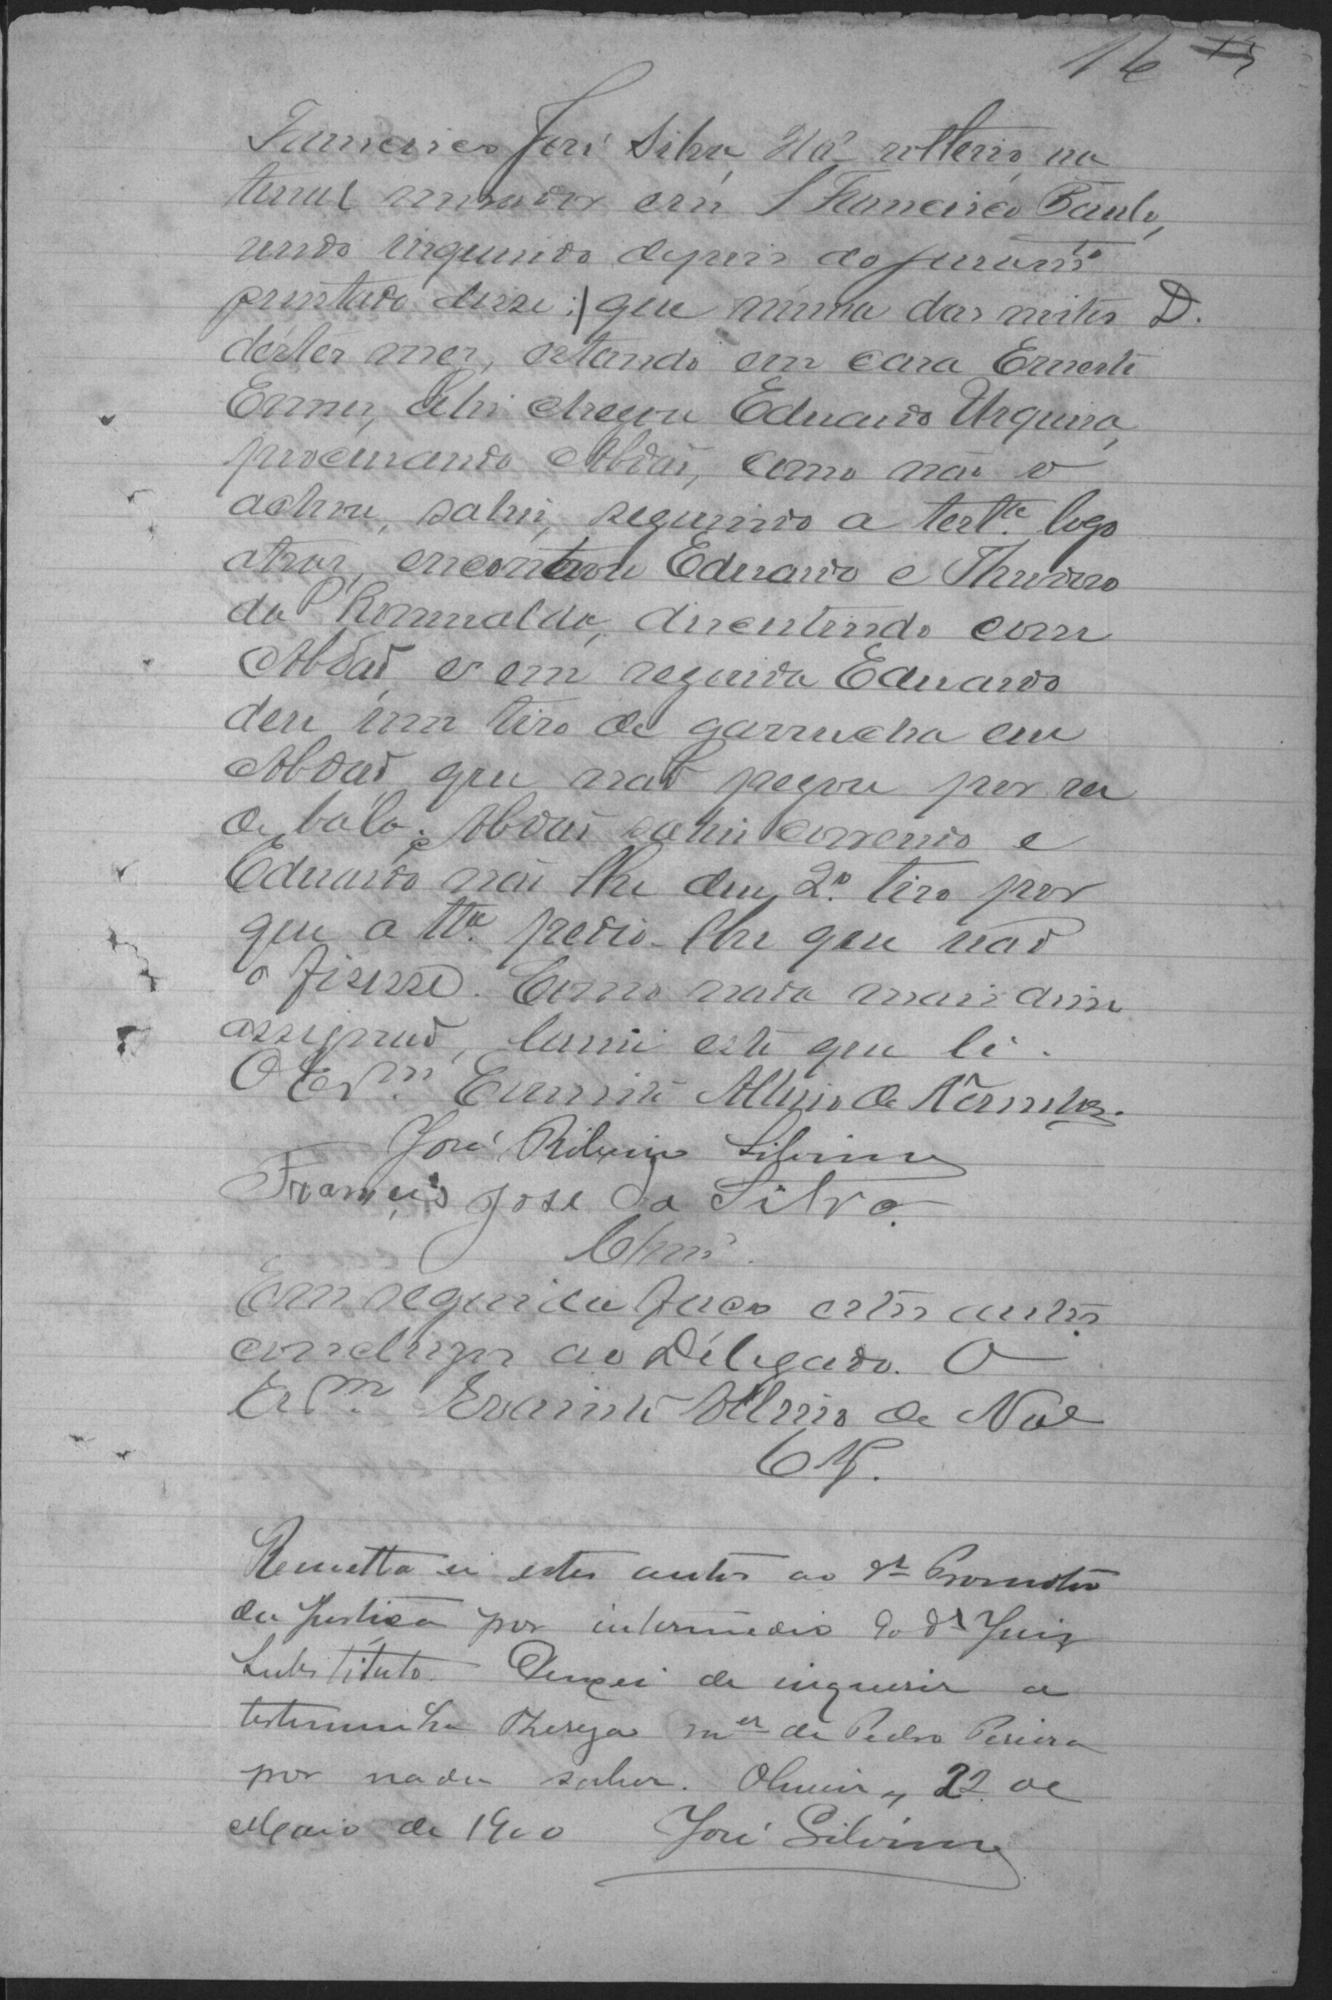 16 15
Francisco José Silva, solteiro, na
tural morador em S Francisco Paulo,
sendo inquirido depois do juramto
prestado disse: que numa das noites D.
deste mez, estando em casa Ernesto
ahi chegou Eduardo Urquisa,
procurando Abdad, como não o
achou, sahiu, seguindo a testa. logo
atraz, encontrou Eduardo e Theodoro
da Pa Romualda, discutindo com
Abdad, e em seguida Eduardo
deu um tiro de garrucha em
Abdad que não pegou por ser
de bala. Abdad sahiu correndo e
Eduardo não lhe deu 2º tiro por
que a tta. pedio-lhe que não
o fizesse. Como nada mais disse
assignao, com este que li.
O Escm.
José Ribeiro Silvino
Francisco Jose da Silva.
Clmo.
Em seguida faço estes autos
conclusos ao Delegado. O
Escm. de
Cls.
Remetta se estes autos ao Dr Promotor
da Justiça por intermedio do Dr Juiz
Substituto. Deixei de inquirir a
testemunha Thereza mer de Pedro Pereira
por nada saber. Oliveira, 22 de
Maio de 1900 José Silvino